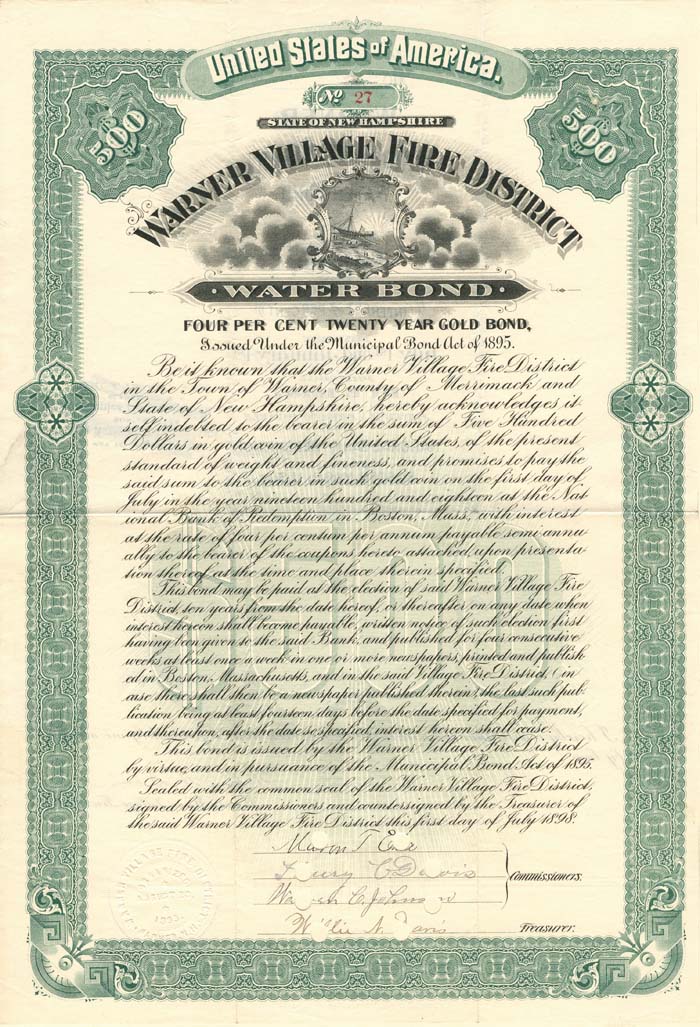 United States of America.
500
No 27
500
STATE OF NEW HAMPSHIRE
WARNER VILLAGE FIRE DISTRICT
·WATER BOND·
FOUR PER CENT TWENTY YEAR GOLD BOND,
Issued Under the Municipal Bond Act of 1895.
Be it known that the Warner Village Fire District
in the Town of Warner, County of Merrimack and
State of New Hampshire, hereby acknowledges it
self indebted to the bearer in the sum of Five Hundred
Dollars in gold coin of the United States, of the present
standard of weight and fineness, and promises to pay the
said sum to the bearer in such gold coin on the first day of
July in the year nineteen hundred and eighteen at the Nat
ional Bank of Redemption in Boston, Mass., with interest
at the rate of four per centum per annum payable semi annu
ally to the bearer of the coupons hereto attached, upon presenta
tion thereof at the time and place therein specified.
This bond may be paid at the election of said Warner Village Fire
District, ten years from the date hereof, or thereafter on any date when
interest hereon shall become payable, written notice of such election first
having been given to the said Bank, and published for four consecutive
weeks at least once a week in one or more newspapers, printed and publish-
ed in Boston, Massachusetts, and in the said Village Fire District, (in
case there shall then be a newspaper published therein) the last such pub-
lication being at least fourteen days before the date specified for payment,
and thereupon, after the date so specified, interest hereon shall cease.
This bond is issued by the Warner Village Fire District
by virtue, and in pursuance of the Municipal Bond Act of 1895.
Sealed with the common seal of the Warner Village Fire District,
signed by the Commissioners and countersigned by the Treasurer of
the said Warner Village Fire District this first day of July 1898.
Davis
Commissioners.
Davis
Treasurer.